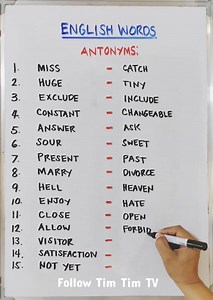 ENGLISH WORDS
ANTONYMS:
1. MISS - CATCH
2. HUGE - TINY
3. EXCLUDE - INCLUDE
4. CONSTANT - CHANGEABLE
5. ANSWER - ASK
6. SOUR - SWEET
7. PRESENT - PAST
8. MARRY - DIVORCE
9. HELL - HEAVEN
10. ENJOY - HATE
11. CLOSE - OPEN
12. ALLOW - FORBID
13. VISITOR -
14. SATISFACTION -
15. NOT YET -
Follow Tim Tim TV